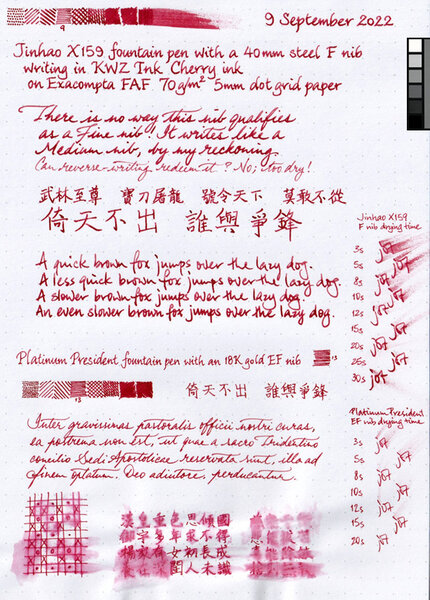 9 September 2022
9
Jinhao X159 fountain pen with a 40mm steel F nib
writing in KWZ Ink Cherry ink
on Exacompta FAF 70g/m² 5mm dot grid paper
There is no way this nib qualifies
as a Fine nib! It writes like a
Medium nib, by my reckoning.
Can reverse-writing redeem it? No; too dry!
武林至尊 寶刀屠龍 號令天下 莫敢不從
倚天不出 誰與爭鋒
A quick brown fox jumps over the lazy dog.
A less quick brown fox jumps over the lazy dog.
A slower brown fox jumps over the lazy dog.
An even slower brown fox jumps over the lazy dog.
Platinum President fountain pen with an 18K gold EF nib
13
倚天不出 誰與爭鋒
13
Inter gravissimas pastoralis officii nostri curas,
ea postrema non est, ut quae a sacro Tridentino
concilio Sedi Apostolicae reservata sunt, illa ad
finem optatum, Deo adiutore, perducantur.
漢皇重色思傾國
御宇多年求不得
楊家有女初長成
養在深閨人未識
Jinhao X159
F nib drying time
3s
5s
8s
10s
12s
15s
20s
25s
30s
Platinum President
EF nib drying time
3s
5s
8s
10s
12s
15s
20s